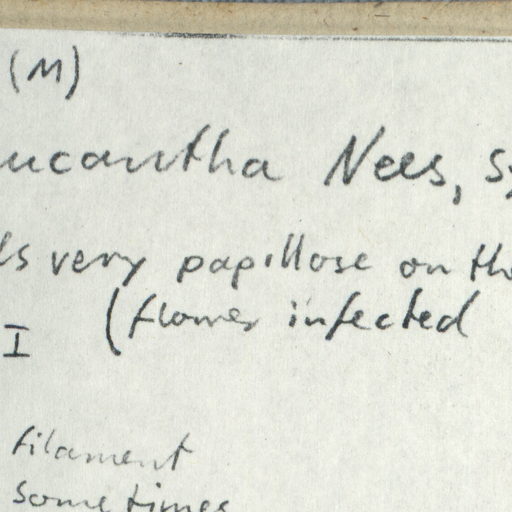 (M)
ucantha Nees, S
ls very papillose on the
(flower infected
I
filament
sometimes